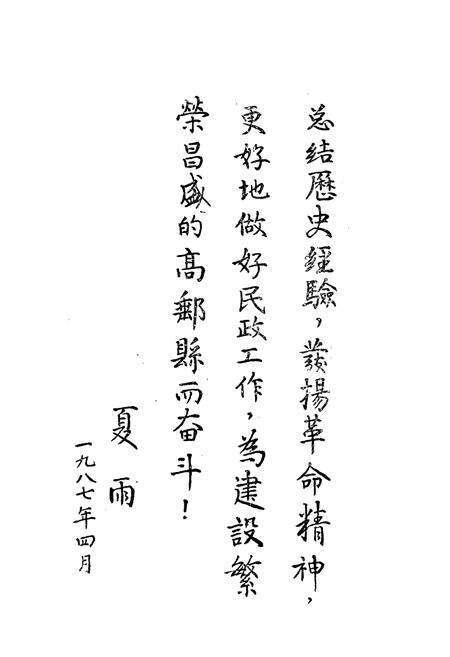 总结歷史經驗，發揚革命精神，
更好地做好民政工作，為建設繁
榮昌盛的高郵縣而奋斗！
夏雨
一九八七年四月